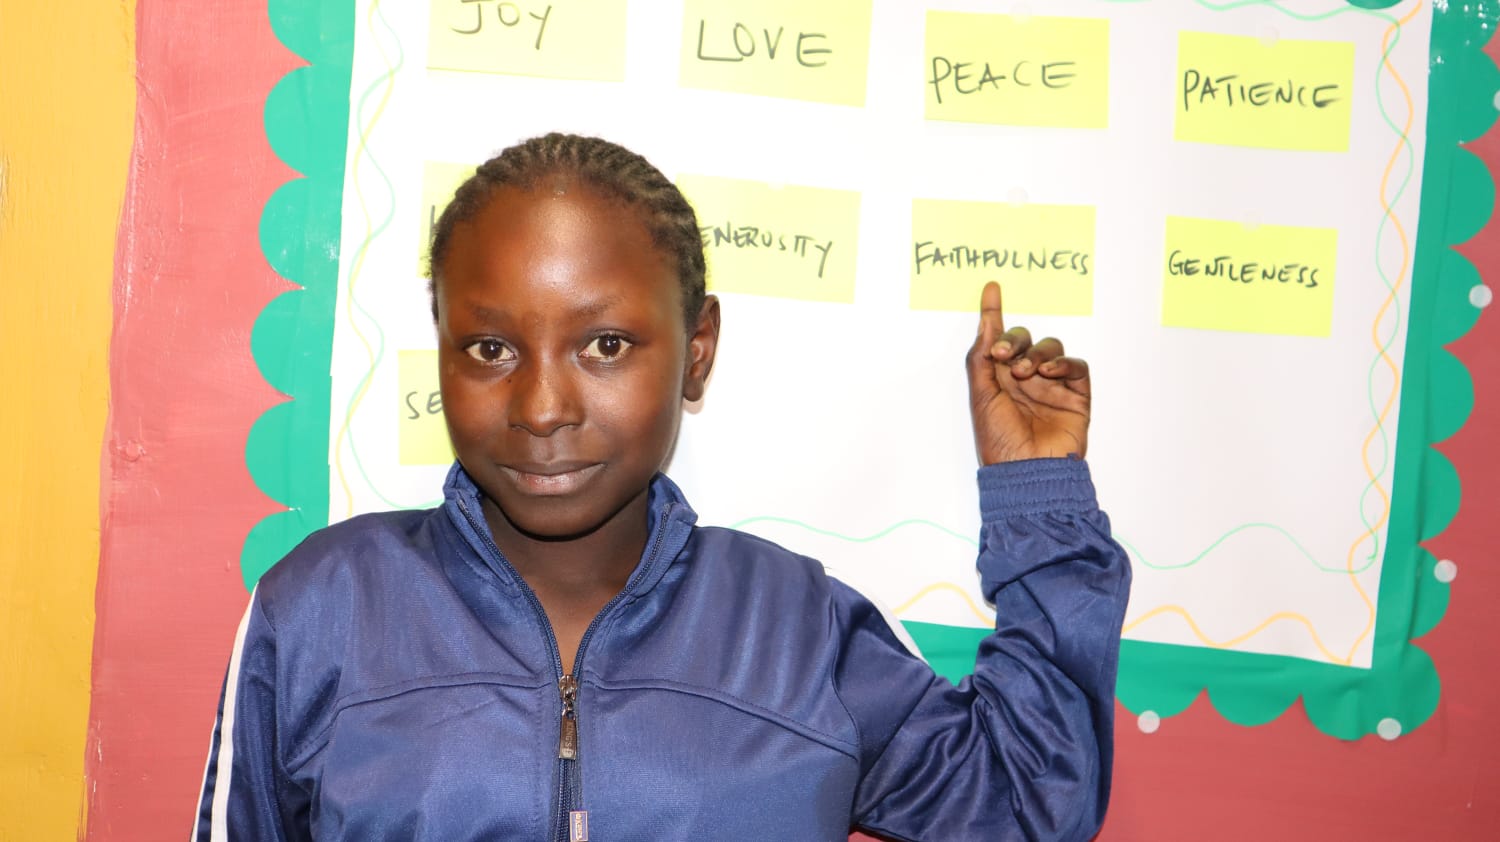 JOY
LOVE
PEACE
PATIENCE
ENEROSITY
FAITHFULNESS
GENTLENESS
SE